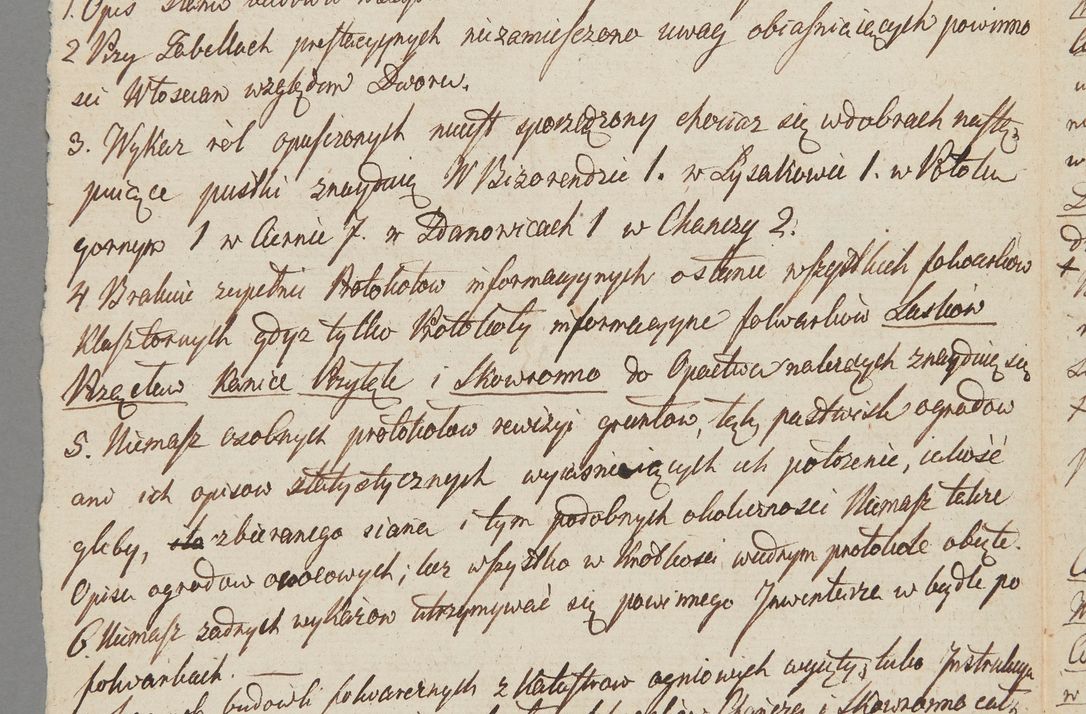 1. Opis stanu
2 Przy Tabellach prestacyjnych niezamieszczono uwag obiaśniaiących powinno
sci Włoscian względem Dworu.
3. Wykaz ról opuszczonych nieiest sporządzony chociaz się w dobrach nastę¸
puiące pustki znayduią W Bizorendzie 1. w Łysakowie 1. w Potoku
gornym 1 w Ciernie 7. w Zdanowicach 1 w Chanczy 2.
4 Brakuie zupełnie Protokołow informacyinych o stanie wszystkich folwarków
Klasztornych gdyz tylko Protokoły informacyine folwarków Laskow
Wrzącław Kanice Przytęk i Skowronno do Opactwa należących znayduią się
5. Niemasz osobnych protokołow rewizyi gruntow, łąk, pastwisk ogrodow
ani ich opisow statystycznych wyiasniaiących ich położenie, ilość
gleby, zbieranego siana i tym podobnych okoliczności Niemasz takze
Opisu ogrodow owocowych; lecz wszystko w krótkości w iednym protokole obięte.
6 Niemasz zadnych wykazow utrzymywać się powinnego Inwentarza w bydle po
folwarkach.
budowli folwarcznych z Katastrow ogniowych wyięty, lubo Instrukcya
Chanczy i Skowronno